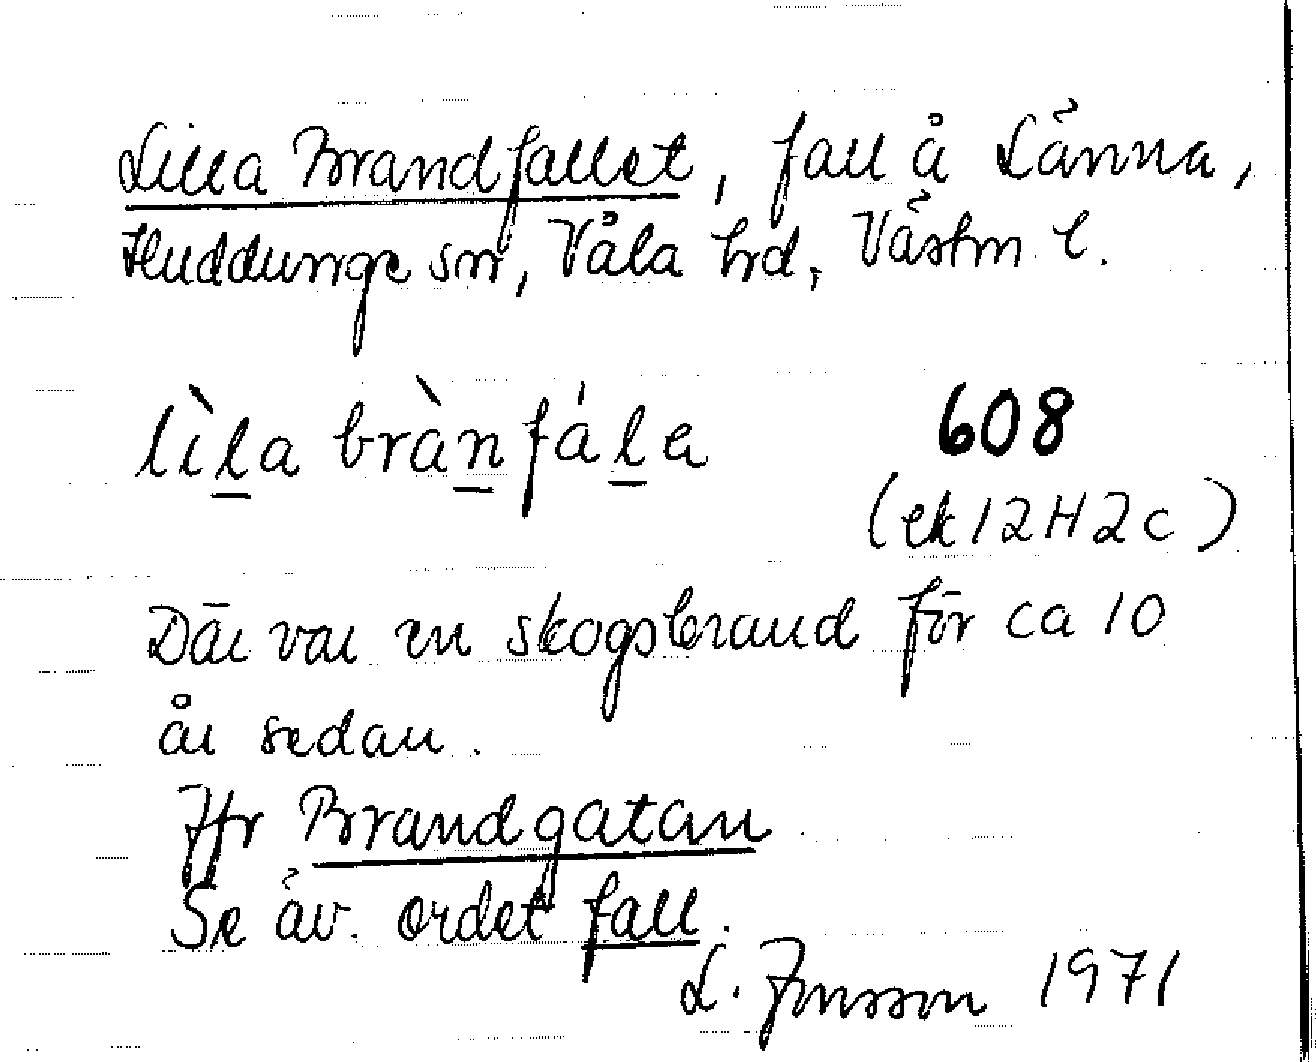 Lilla Brandfallet, fall å Länna,
Huddunge sn, Våla hd, Västm l.
lìla brànfála 608
(ek 12H2c)
Där var en skogsbrand för ca 10
år sedan.
Jfr Brandgatan
Se äv. ordet fall.
L. Jonsson 1971